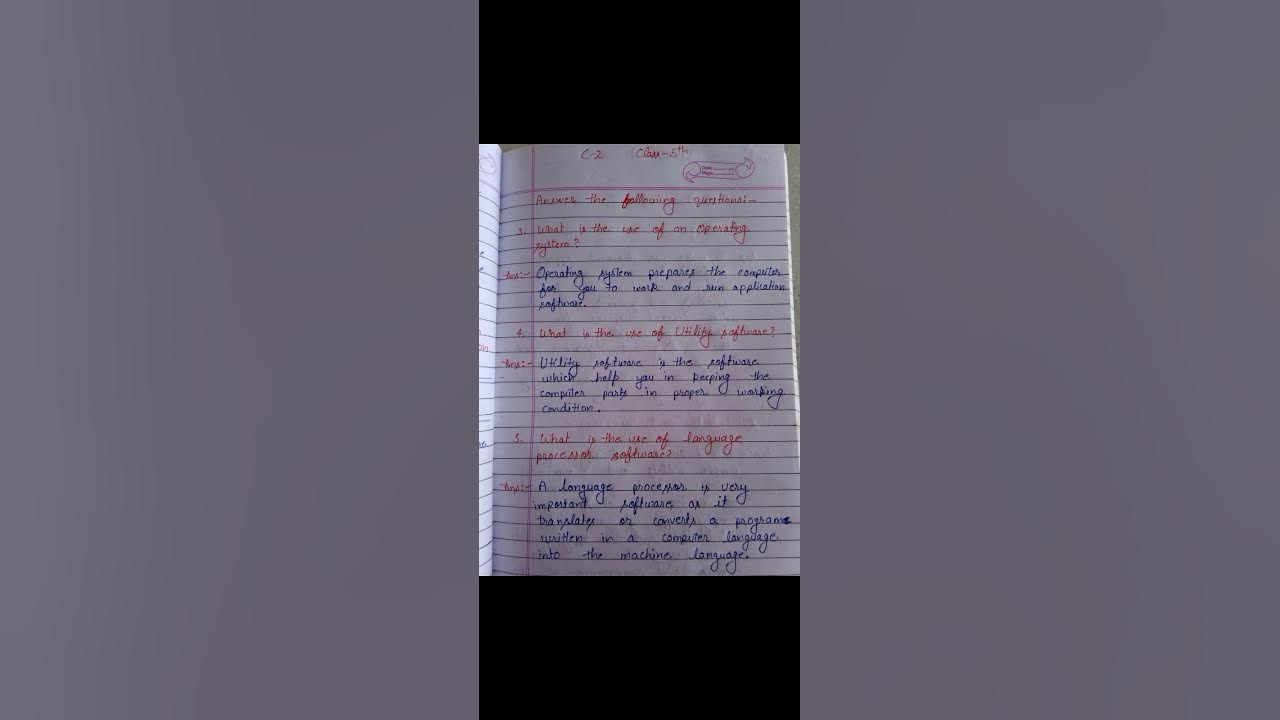 C-2 Class-5th
Date
Page
Answer the following questions:-
3. What is the use of an Operating
system?
Ans:- Operating system prepares the computer
for you to work and run application
software.
4. What is the use of Utility software?
Ans:- Utility software is the software
which help you in keeping the
computer parts in proper working
condition.
5. What is the use of language
processor software?
Ans:- A language processor is very
important software as it
translates or converts a programe
written in a computer language
into the machine language.